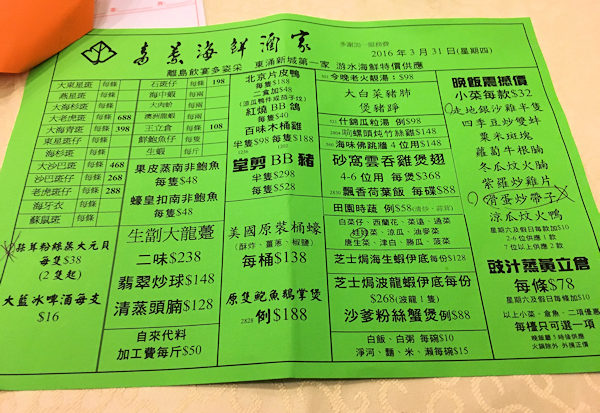 海鮮酒家
多謝加一服務費
2016年3月31日(星期四)
離島飲宴多姿采
東涌新城第一家
游水海鮮特價供應
大東星斑 每條
燕星斑 每條
大海杉斑 每條
大老虎斑 每條 688
大海青斑 每條 398
東星斑仔 每條
海杉斑 每條
大沙巴斑 每條 468
沙巴斑仔 每條 268
老虎斑仔 每條 288
海牙衣 每條
蘇鼠斑 每條
石斑仔 每條 198
海中蝦 每兩
大肉蚧 每兩
澳洲龍蝦 每兩
王立倉 每條 108
鮮鮑魚仔 每隻
生蝦 每斤
果皮蒸南非鮑魚
每隻$48
蠔皇扣南非鮑魚
每隻$48
蒜茸粉絲蒸大元貝
每隻$38
(2隻起)
大藍冰啤酒每支
$16
生劏大龍躉
二味$238
翡翠炒球$148
清蒸頭腩$128
自來代料
加工費每斤$50
北京片皮鴨
每隻$188
二食加$48
紅燒BB鴿
每隻$40
百味木桶雞
半隻$98 每隻$188
堂剪BB豬
半隻$298
每隻$528
美國原裝桶蠔
(酥炸、薑葱、椒鹽)
每桶$138
原隻鮑魚鵝掌煲
2828 例$188
今晚老火靚湯：$98
大白菜豬肺
煲豬踭
什錦瓜粒湯 例$98
响螺頭炖竹絲雞$148
海味佛跳牆 4位用$148
砂窩雲吞雞煲翅
4-6位用 每煲$368
2830 飄香荷葉飯 每碟$88
田園時蔬 例$58(清炒、蒜茸)
白菜仔、西蘭花、菜遠、通菜
紅莧菜、涼瓜、油麥菜
唐生菜、津白、勝瓜、菠菜
芝士焗海生蝦伊底每份$128
芝士焗波龍蝦伊底每份
$268(波龍1隻)
沙爹粉絲蟹煲 例$88
白飯、白粥 每碗$10
淨河、麵、米、瀨每碗$15
晚飯震撼價
小菜每款$32
走地銀沙雞半隻
四季豆炒雙蚌
粟米斑塊
蘿蔔牛根腩
冬瓜炆火腩
紫羅炒雞片
滑蛋炒帶子
涼瓜炆火鴨
星期六及假日每款加$10
2-6位供應1款
7位以上供應2款
豉汁蒸黃立倉
每條$78
星期六及假日每條加$10
以上小菜、倉魚、二項優惠
每檯只可選一項
晚飯廳5時後供應
火鍋除外 外攞正價